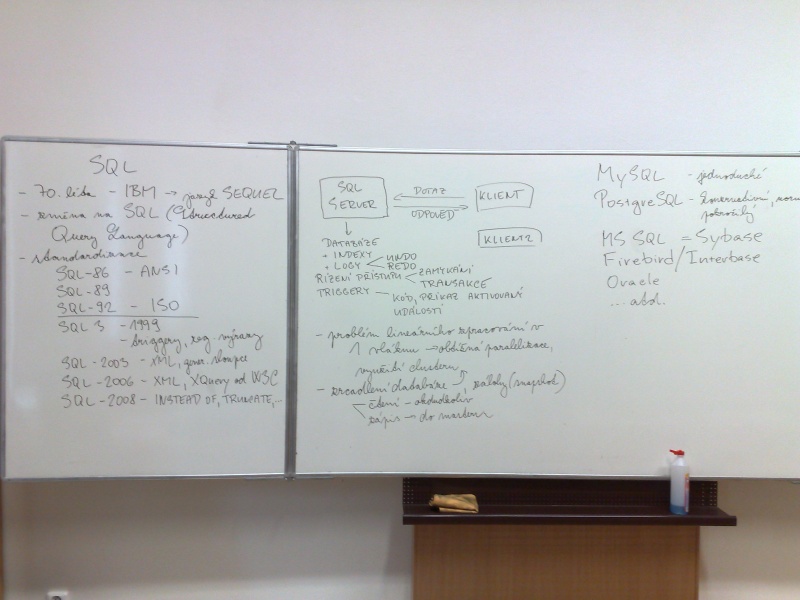 SQL
- 70. léta - IBM → jazyk SEQUEL
- změna na SQL (Structured
Query Language)
- standardizace
SQL-86 - ANSI
SQL-89
SQL-92 - ISO
SQL 3 - 1999
- triggery, reg. výrazy
SQL-2003 - XML, gener. sloupce
SQL-2006 - XML, XQuery od W3C
SQL-2008 - INSTEAD OF, TRUNCATE,...
SQL
SERVER
DOTAZ
ODPOVĚĎ
KLIENT
KLIENT2
DATABÁZE
+ INDEXY
+ LOGY
UNDO
REDO
ŘÍZENÍ PŘÍSTUPU
ZAMYKÁNÍ
TRANSAKCE
TRIGGERY - KÓD, PŘÍKAZ AKTIVOVANÝ
UDÁLOSTÍ
- problém lineárního zpracování v
1 vláknu → obtížná paralelizace,
využití clusteru
- zrcadlení databáze, zálohy (snapshot)
čtení - odkudkoliv
zápis - do masteru
MySQL - jednoduché
PostgreSQL - konzervativní,
pokročilý
MS SQL = Sybase
Firebird/Interbase
Oracle
... atd.